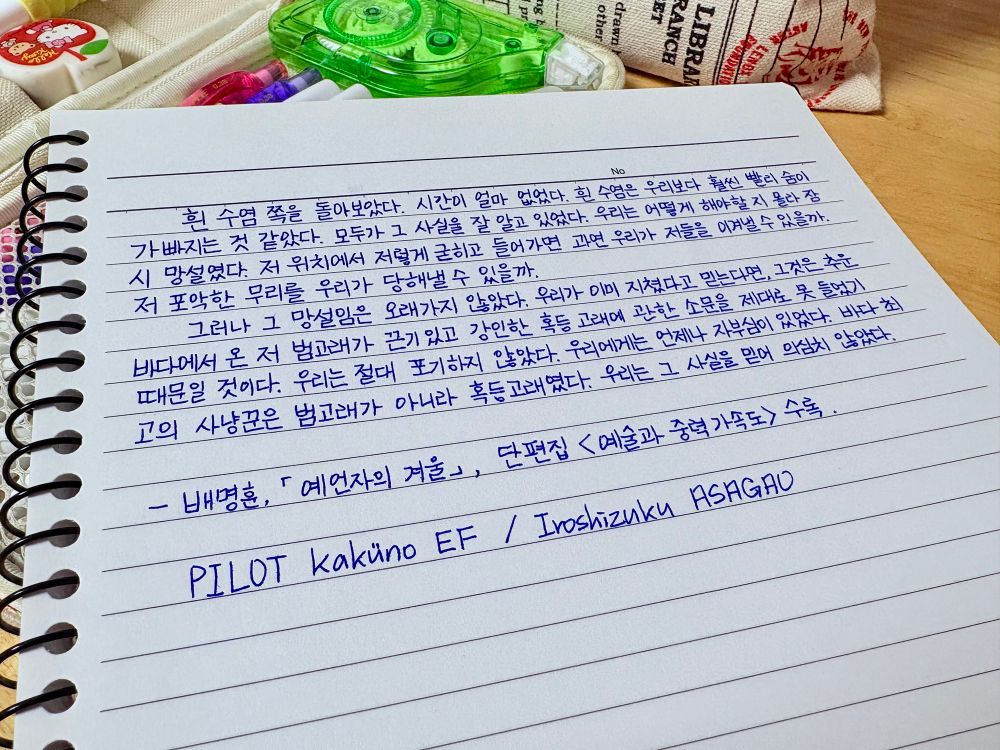 LIBRAR
RANCH
ET
drawn
other
No
흰 수염 쪽을 돌아보았다. 시간이 얼마 없었다. 흰 수염은 우리보다 훨씬 빨리 숨이
가빠지는 것 같았다. 모두가 그 사실을 잘 알고 있었다. 우리는 어떻게 해야할 지 몰라 잠
시 망설였다. 저 위치에서 저렇게 굳히고 들어가면 과연 우리가 저들을 이겨낼 수 있을까.
저 포악한 무리를 우리가 당해낼 수 있을까.
그러나 그 망설임은 오래가지 않았다. 우리가 이미 지쳤다고 믿는다면, 그것은 추운
바다에서 온 저 범고래가 끈기있고 강인한 혹등고래에 관한 소문을 제대로 못 들었기
때문일 것이다. 우리는 절대 포기하지 않았다. 우리에게는 언제나 자부심이 있었다. 바다 최
고의 사냥꾼은 범고래가 아니라 혹등고래였다. 우리는 그 사실을 믿어 의심치 않았다.
- 배명훈, 「예언자의 겨울」, 단편집 <예술과 중력가속도> 수록.
PILOT kaküno EF / Iroshizuku ASAGAO